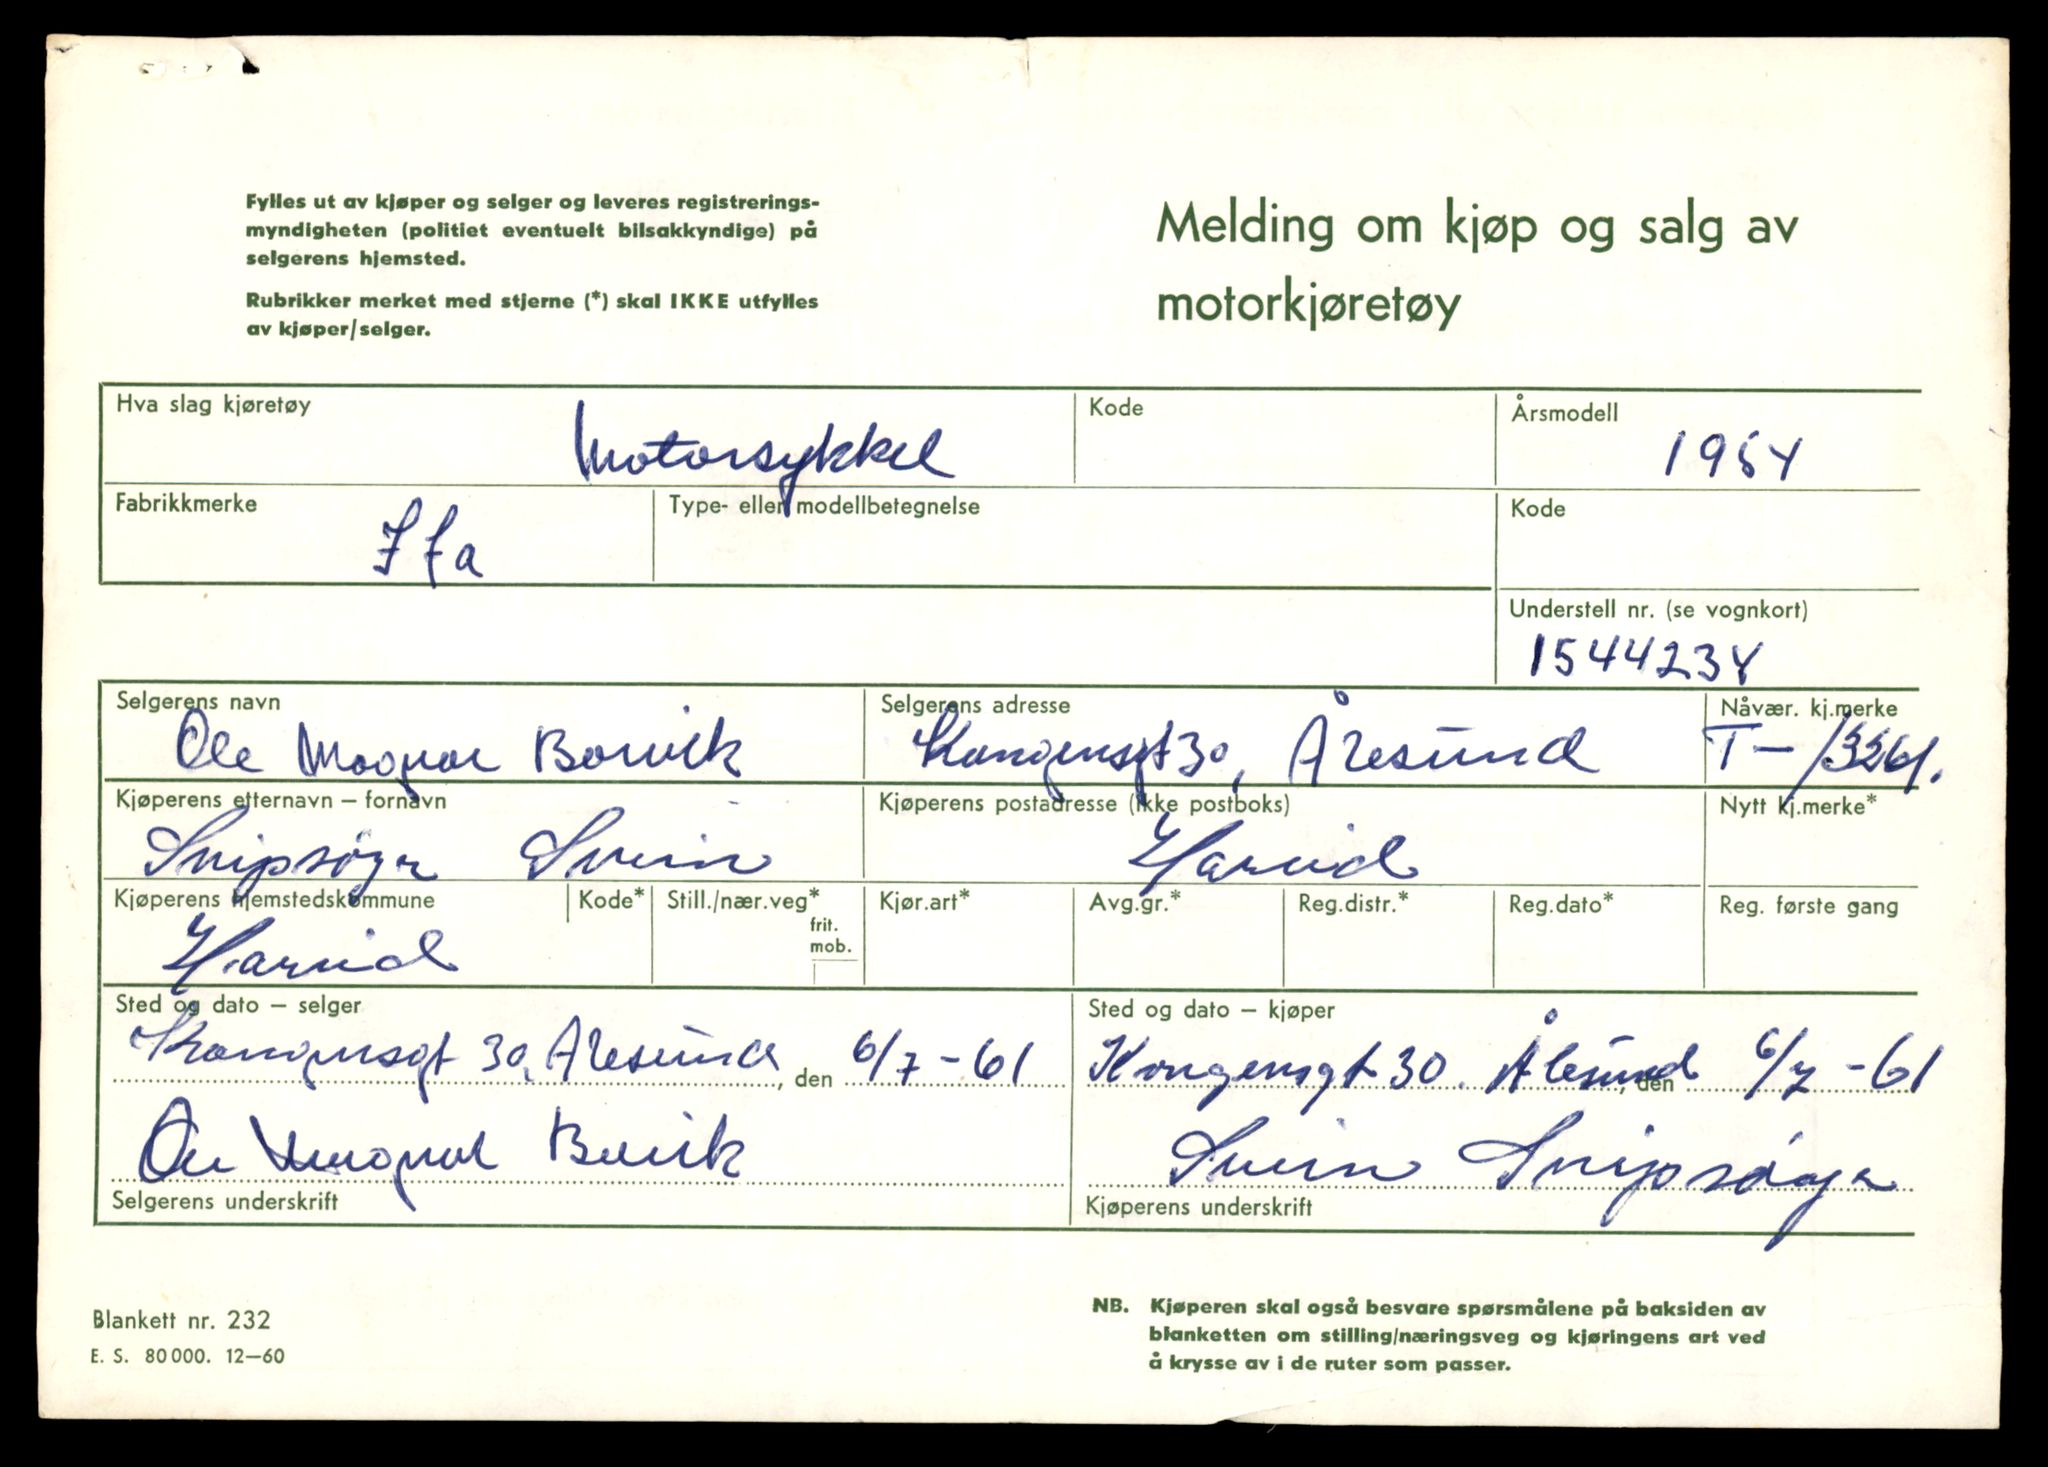 Fylles ut av kjøper og selger og leveres registrerings-
myndigheten (politiet eventuelt bilsakkyndige) på
selgerens hjemsted.
Rubrikker merket med stjerne (*) skal IKKE utfylles
av kjøper/selger.
Melding om kjøp og salg av
motorkjøretøy
Hva slag kjøretøy Motorsykkel Kode Årsmodell 1954
Fabrikkmerke Ifa Type- eller modellbetegnelse Kode
Understell nr. (se vognkort)
1544234
Selgerens navn Selgerens adresse Nåvær. kj.merke
Ole Magnar Borvik Kongensgt 30, Ålesund T-13261.
Kjøperens etternavn – fornavn Kjøperens postadresse (ikke postboks) Nytt kj.merke*
Snipsøyr Svein Hareid
Kjøperens hjemstedskommune Kode* Still./nær.veg* frit. mob. Kjør.art* Avg.gr.* Reg.distr.* Reg.dato* Reg. første gang
Hareid
Sted og dato – selger Sted og dato – kjøper
Kongensgt 30, Ålesund, den 6/7-61 Kongensgt 30. Ålesund, den 6/7-61
Ole Magnar Borvik Svein Snipsøyr
Selgerens underskrift Kjøperens underskrift
Blankett nr. 232
E. S. 80 000. 12–60
NB. Kjøperen skal også besvare spørsmålene på baksiden av
blanketten om stilling/næringsveg og kjøringens art ved
å krysse av i de ruter som passer.